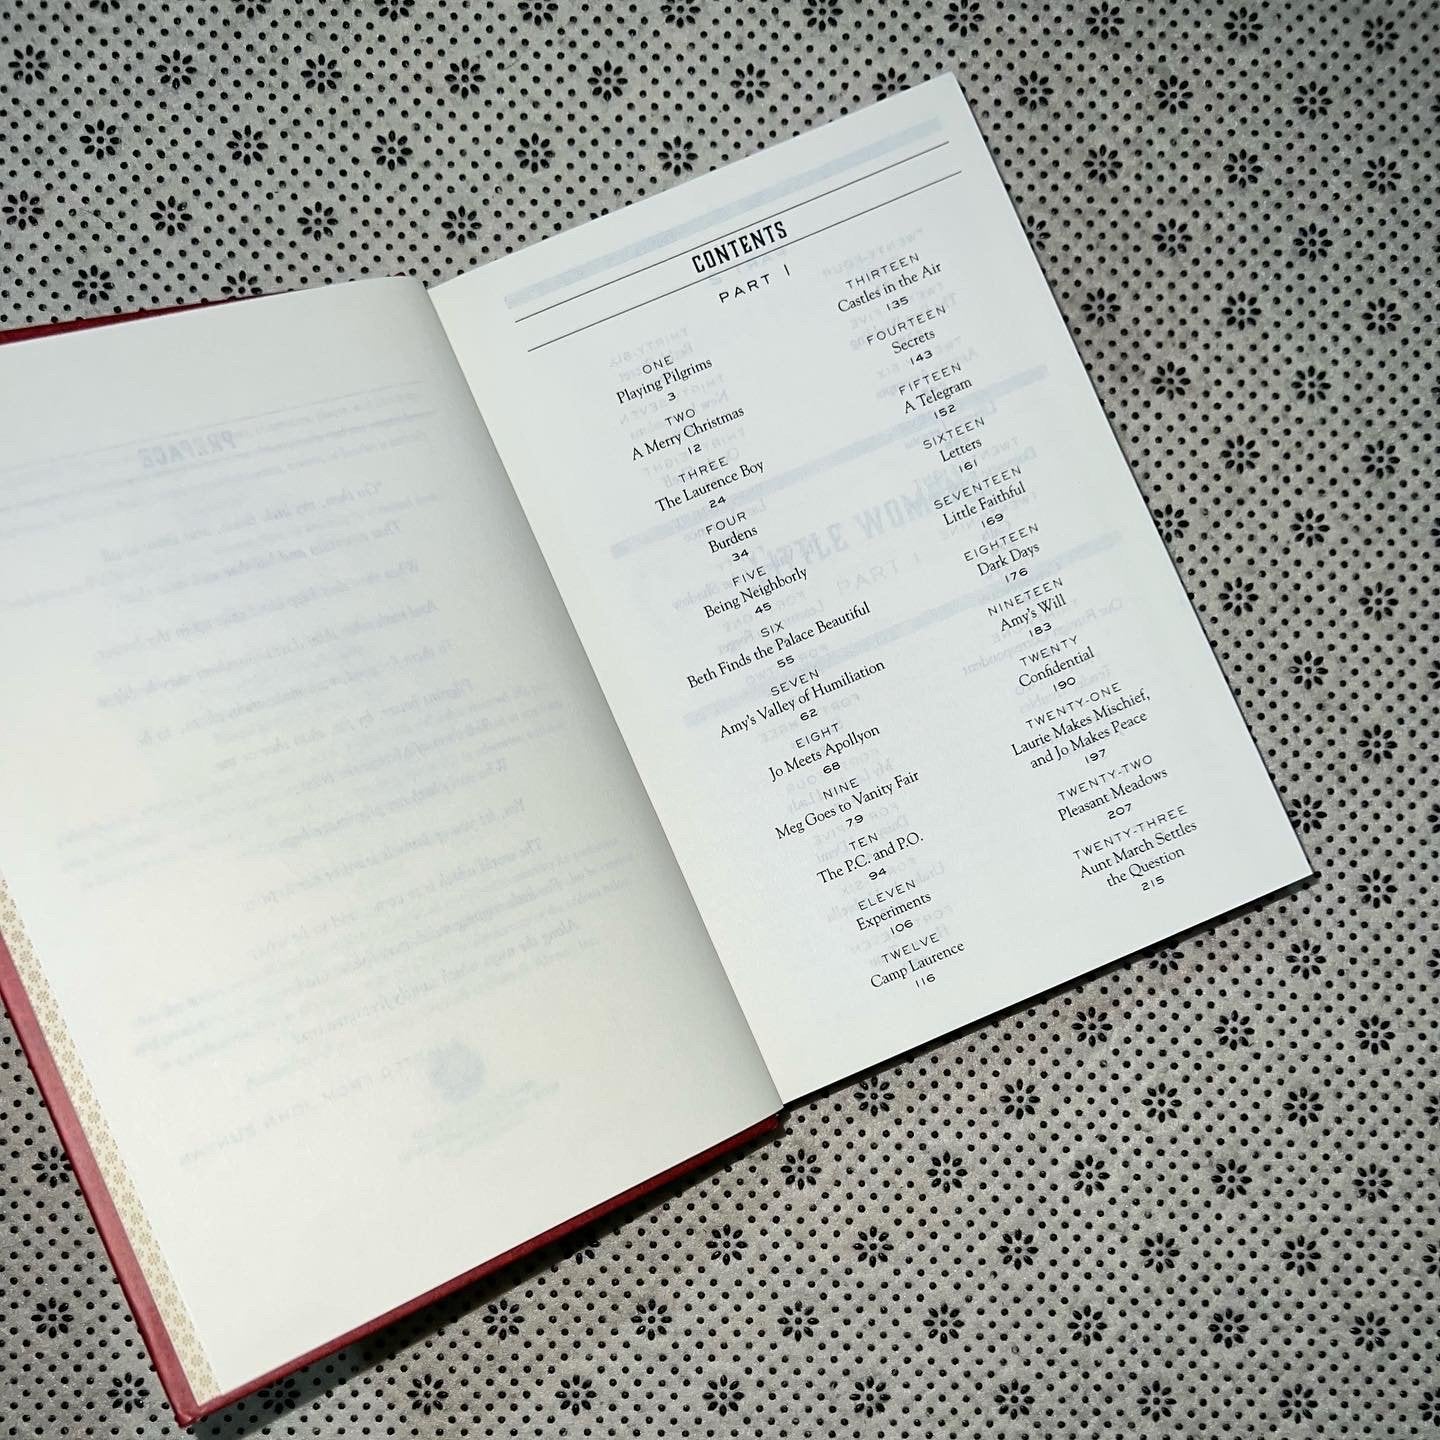 CONTENTS
PART I
ONE
Playing Pilgrims
3
TWO
A Merry Christmas
12
THREE
The Laurence Boy
24
FOUR
Burdens
34
FIVE
Being Neighborly
45
SIX
Beth Finds the Palace Beautiful
55
SEVEN
Amy's Valley of Humiliation
62
EIGHT
Jo Meets Apollyon
68
NINE
Meg Goes to Vanity Fair
79
TEN
The P.C. and P.O.
94
ELEVEN
Experiments
106
TWELVE
Camp Laurence
116
THIRTEEN
Castles in the Air
135
FOURTEEN
Secrets
143
FIFTEEN
A Telegram
152
SIXTEEN
Letters
161
SEVENTEEN
Little Faithful
169
EIGHTEEN
Dark Days
176
NINETEEN
Amy's Will
183
TWENTY
Confidential
190
TWENTY-ONE
Laurie Makes Mischief,
and Jo Makes Peace
197
TWENTY-TWO
Pleasant Meadows
207
TWENTY-THREE
Aunt March Settles
the Question
215